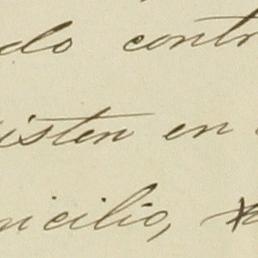 do contr
isten en
icilio,